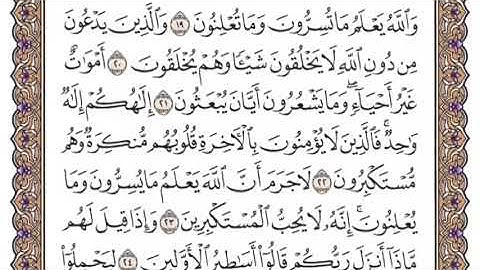 وَٱللَّهُ يَعْلَمُ مَا تُسِرُّونَ وَمَا تُعْلِنُونَ ١٩ وَٱلَّذِينَ يَدْعُونَ
مِن دُونِ ٱللَّهِ لَا يَخْلُقُونَ شَيْـًٔا وَهُمْ يُخْلَقُونَ ٢٠ أَمْوَٰتٌ
غَيْرُ أَحْيَآءٍۖ وَمَا يَشْعُرُونَ أَيَّانَ يُبْعَثُونَ ٢١ إِلَٰهُكُمْ إِلَٰهٌ
وَٰحِدٌۚ فَٱلَّذِينَ لَا يُؤْمِنُونَ بِٱلْأَخِرَةِ قُلُوبُهُم مُّنكِرَةٌ وَهُم
مُّسْتَكْبِرُونَ ٢٢ لَا جَرَمَ أَنَّ ٱللَّهَ يَعْلَمُ مَا يُسِرُّونَ وَمَا
يُعْلِنُونَۚ إِنَّهُۥ لَا يُحِبُّ ٱلْمُسْتَكْبِرِينَ ٢٣ وَإِذَا قِيلَ لَهُم
مَّاذَآ أَنزَلَ رَبُّكُمْ قَالُوٓا۟ أَسَٰطِيرُ ٱلْأَوَّلِينَ ٢٤ لِيَحْمِلُوٓا۟